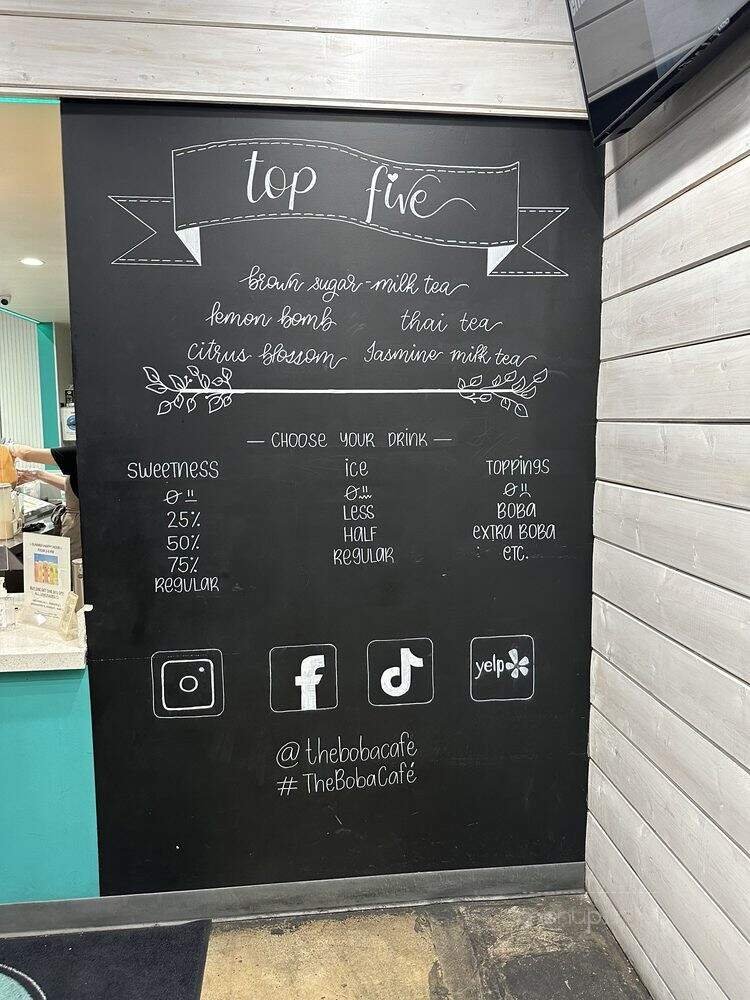 top five
brown sugar milk tea
lemon bomb thai tea
citrus blossom Jasmine milk tea
— CHOOSE YOUR DRINK —
SWEETNESS
0 !!
25%
50%
75%
REGULAR
ICE
0 !!
LESS
HALF
REGULAR
TOPPINGS
0 !!
BOBA
EXTRA BOBA
ETC.
yelp
@thebobacafe
#TheBobaCafé